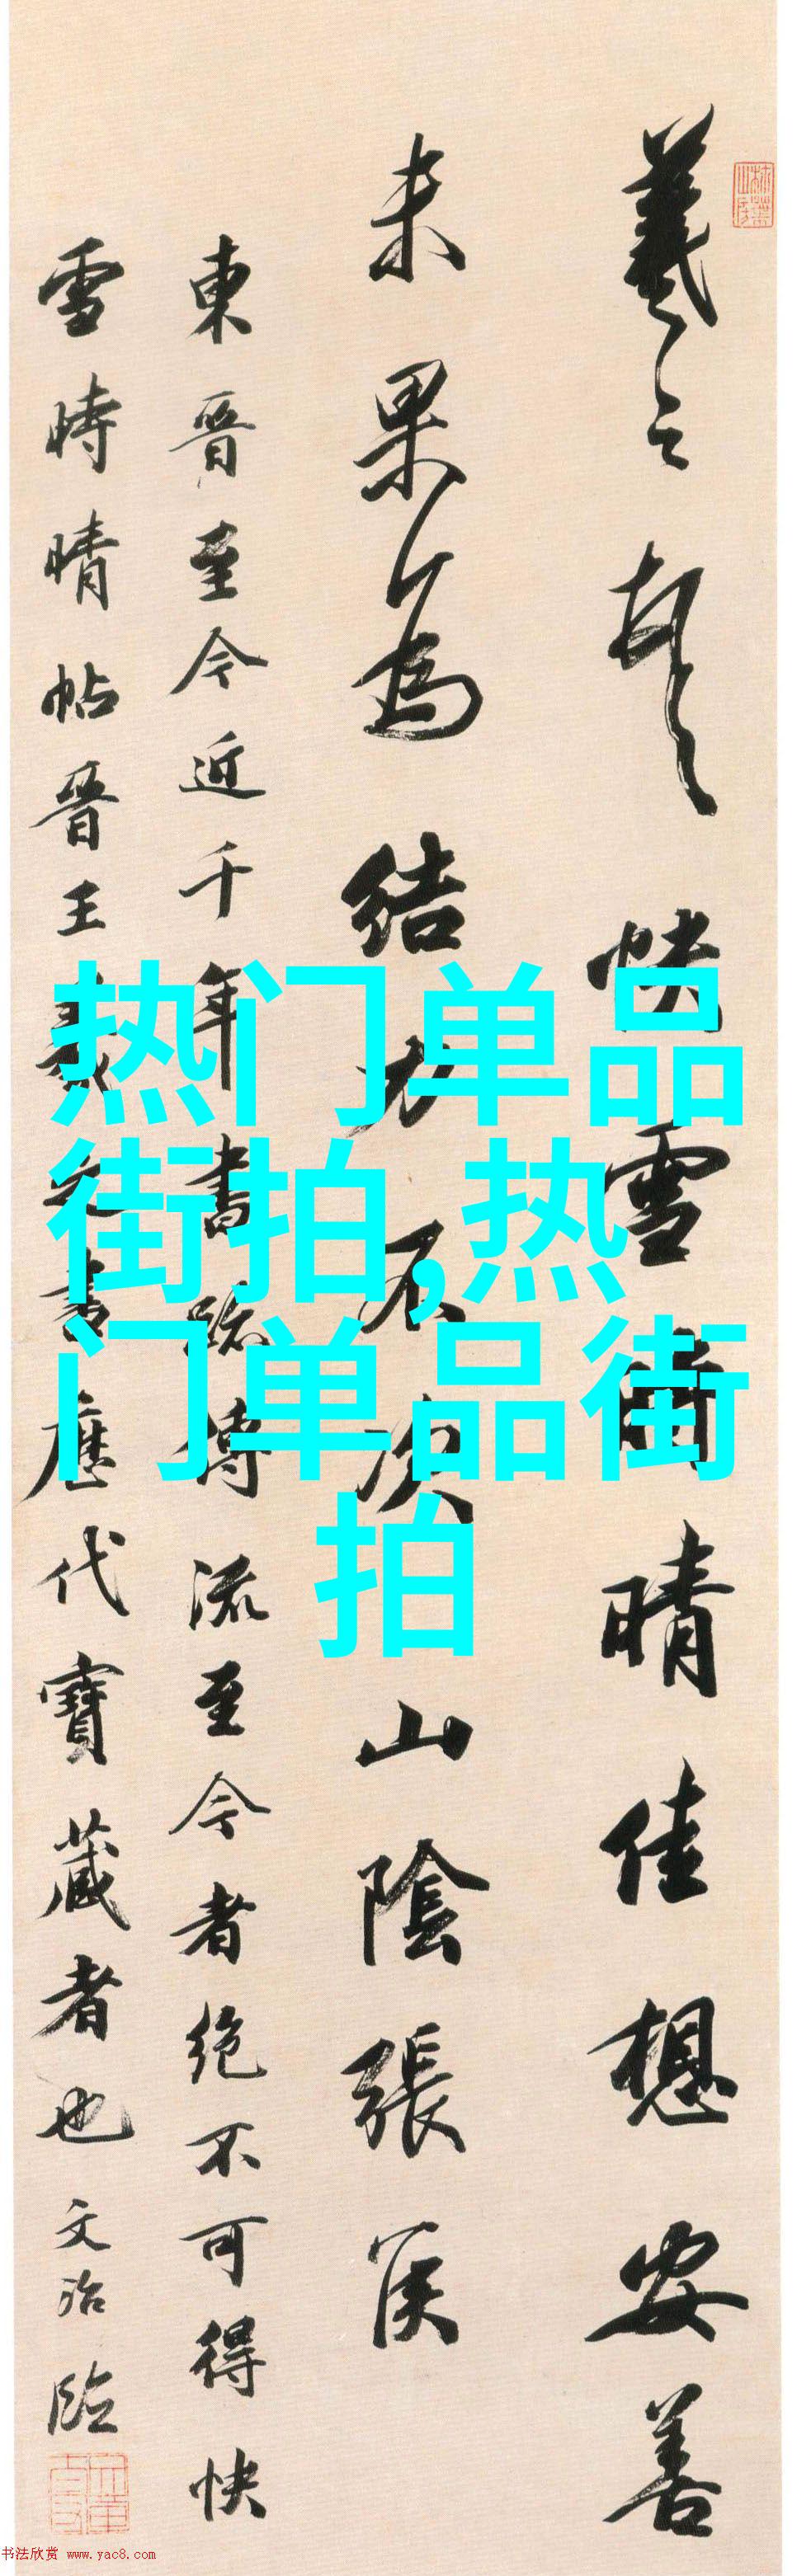 羲之頓首快雪時晴佳想安善
未果為結力不次山陰張侯
東晉至今近千年書跡傳流至今者絕不可得快
雪時晴帖晉王羲之書歷代寶藏者也文治臨
热门单品
街拍,热
门单品街
拍
书法欣赏 www.yac8.com